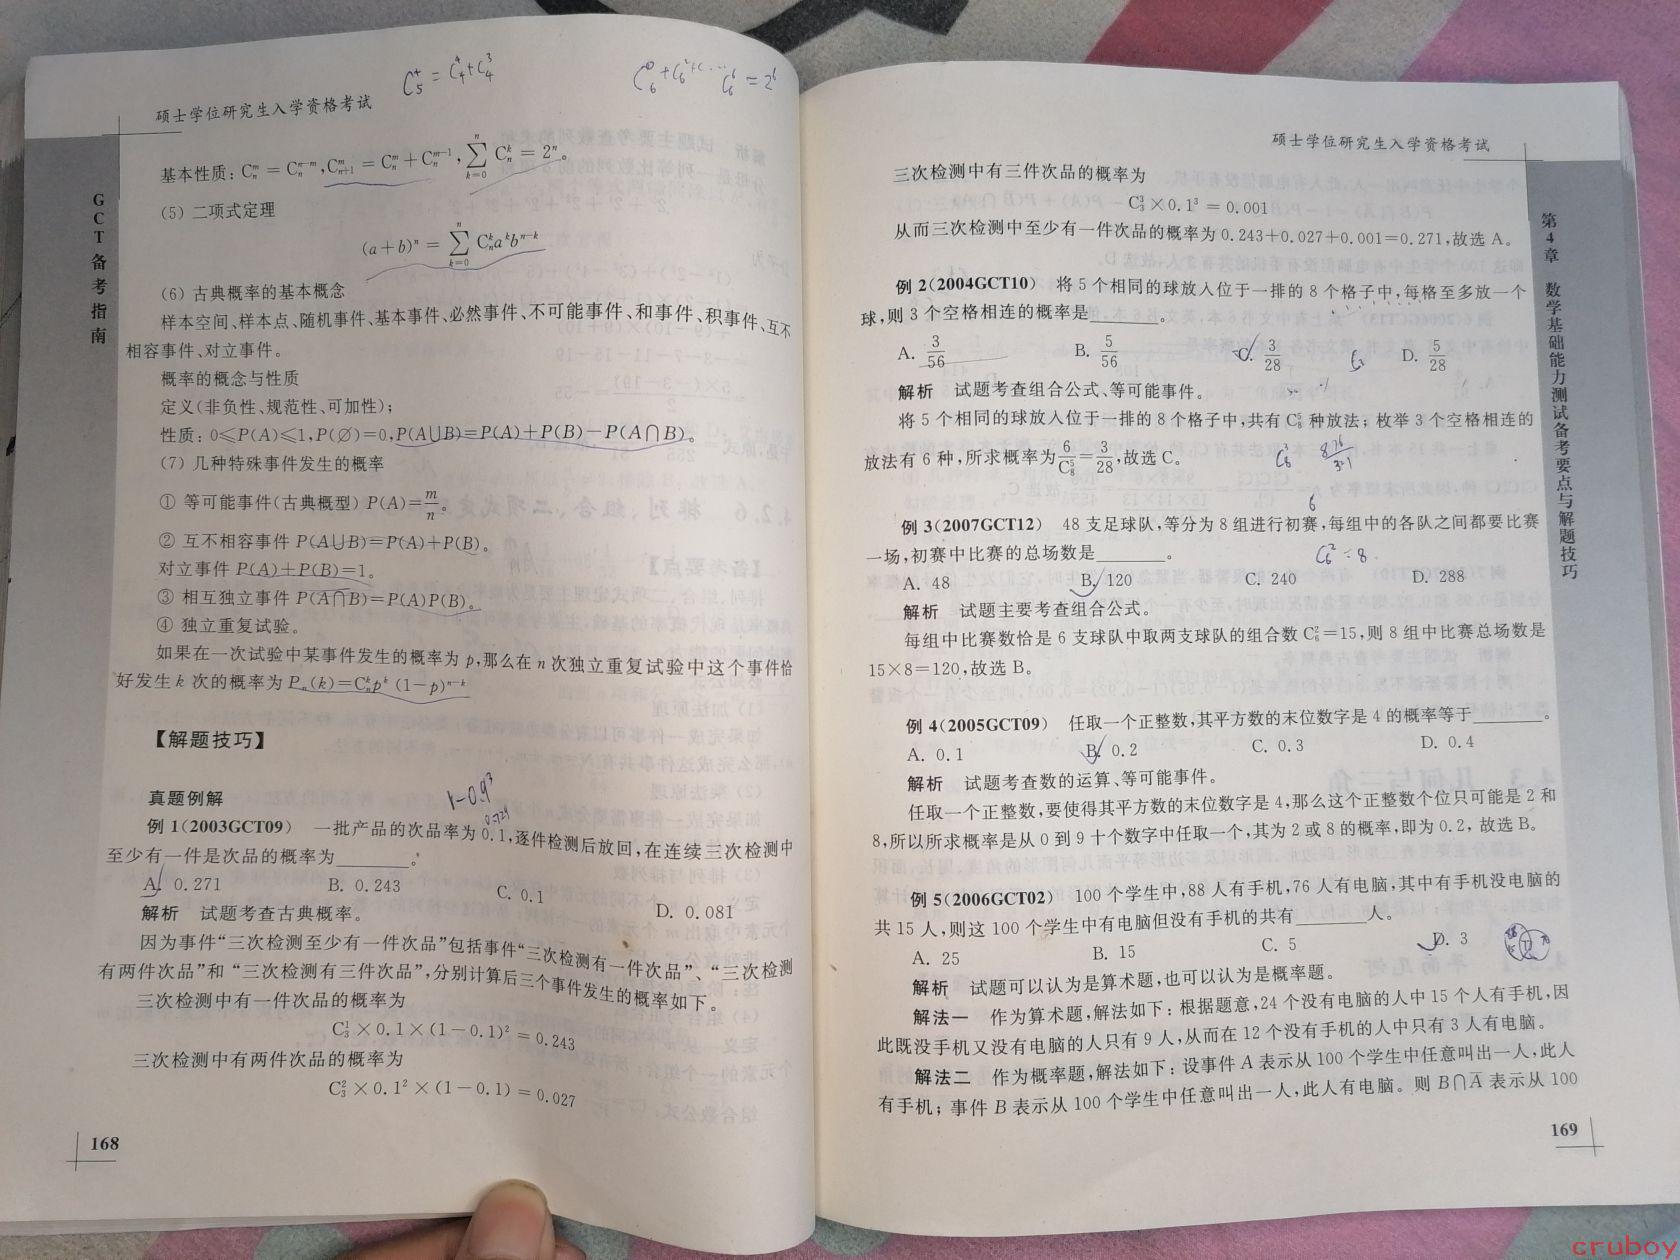 C₅⁴ = C₄⁴+C₄³
硕士学位研究生入学资格考试
GCT备考指南
基本性质: Cₙᵐ = Cₙⁿ⁻ᵐ, Cₙ₊₁ᵐ = Cₙᵐ + Cₙᵐ⁻¹, ∑ₖ₌₀ⁿ Cₙᵏ = 2ⁿ。
(5) 二项式定理
(a+b)ⁿ = ∑ₖ₌₀ⁿ Cₙᵏaᵏbⁿ⁻ᵏ
(6) 古典概率的基本概念
样本空间、样本点、随机事件、基本事件、必然事件、不可能事件、和事件、积事件、互不
相容事件、对立事件。
概率的概念与性质
定义(非负性、规范性、可加性);
性质: 0≤P(A)≤1,P(∅)=0,P(A∪B)=P(A)+P(B)−P(A∩B)。
(7) 几种特殊事件发生的概率
① 等可能事件(古典概型) P(A)=m/n。
② 互不相容事件 P(A∪B)=P(A)+P(B)。
对立事件 P(A)+P(B)=1。
③ 相互独立事件 P(A∩B)=P(A)P(B)。
④ 独立重复试验。
如果在一次试验中某事件发生的概率为 p,那么在 n 次独立重复试验中这个事件恰
好发生 k 次的概率为 Pₙ(k)=Cₙᵏpᵏ (1−p)ⁿ⁻ᵏ
【解题技巧】
真题例解
1-0.9³
0.729
例 1(2003GCT09) 一批产品的次品率为 0.1,逐件检测后放回,在连续三次检测中
至少有一件是次品的概率为______。
A. 0.271 B. 0.243 C. 0.1 D. 0.081
解析 试题考查古典概率。
因为事件“三次检测至少有一件次品”包括事件“三次检测有一件次品”、“三次检测
有两件次品”和 “三次检测有三件次品”,分别计算后三个事件发生的概率如下。
三次检测中有一件次品的概率为
C₃¹×0.1×(1−0.1)² = 0.243
三次检测中有两件次品的概率为
C₃²×0.1²×(1−0.1) = 0.027
168
C₆⁰+C₆¹+…C₆⁶ = 2⁶
硕士学位研究生入学资格考试
第4章 数学基础能力测试备考要点与解题技巧
三次检测中有三件次品的概率为
C₃³×0.1³ = 0.001
从而三次检测中至少有一件次品的概率为 0.243+0.027+0.001=0.271,故选 A。
例 2(2004GCT10) 将 5 个相同的球放入位于一排的 8 个格子中,每格至多放一个
球,则 3 个空格相连的概率是______。
A. 3/56 B. 5/56 C. 3/28 D. 5/28
解析 试题考查组合公式、等可能事件。
将 5 个相同的球放入位于一排的 8 个格子中,共有 C₈⁵ 种放法; 枚举 3 个空格相连的
放法有 6 种,所求概率为 6/C₈⁵ = 3/28,故选 C。
C₈³ 8·7·6/3·2·1
6
例 3(2007GCT12) 48 支足球队,等分为 8 组进行初赛,每组中的各队之间都要比赛
一场,初赛中比赛的总场数是______。
C₆²·8
A. 48 B. 120 C. 240 D. 288
解析 试题主要考查组合公式。
每组中比赛数恰是 6 支球队中取两支球队的组合数 C₆²=15,则 8 组中比赛总场数是
15×8=120,故选 B。
例 4(2005GCT09) 任取一个正整数,其平方数的末位数字是 4 的概率等于______。
A. 0.1 B. 0.2 C. 0.3 D. 0.4
解析 试题考查数的运算、等可能事件。
任取一个正整数,要使得其平方数的末位数字是 4,那么这个正整数个位只可能是 2 和
8,所以所求概率是从 0 到 9 十个数字中任取一个,其为 2 或 8 的概率,即为 0.2, 故选 B。
例 5(2006GCT02) 100 个学生中,88 人有手机,76 人有电脑,其中有手机没电脑的
共 15 人,则这 100 个学生中有电脑但没有手机的共有______人。
A. 25 B. 15 C. 5 D. 3
解析 试题可以认为是算术题,也可以认为是概率题。
解法一 作为算术题,解法如下: 根据题意,24 个没有电脑的人中 15 个人有手机,因
此既没手机又没有电脑的人只有 9 人,从而在 12 个没有手机的人中只有 3 人有电脑。
解法二 作为概率题,解法如下: 设事件 A 表示从 100 个学生中任意叫出一人,此人
有手机; 事件 B 表示从 100 个学生中任意叫出一人,此人有电脑。则 B∩A̅ 表示从 100
169
cruboy